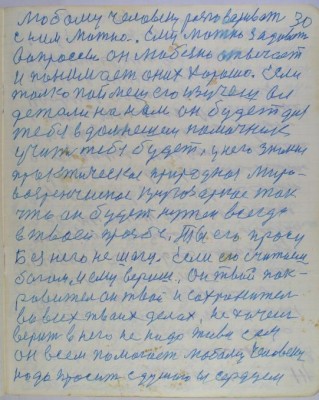 30
любому человеку разговаривать
с ним можно. Ему можно задават
вопросы он любезно отвечает
и понимает о них хорошо. Если
только поймеш его изучеш ои
детали на нем он будет для
тебя в дальнешем помочник
учит тебя будет, у него знания
практическое природная миро-
воззренческое кругозаркое так
что он будет нужен всегда
в твоей прозбе. Ты его просу
Без него не шагу. Если его считаеш
богом, ему вериш. Он твой пок-
равител он твой и сохранител
во всех твоих делах, не хочеш
верит в него не надо живи сам
он всем помогает любому человеку
надо просит с душой и сердцем